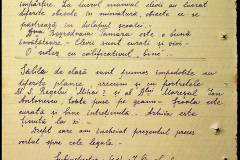 împărțire. La lucrul manual elevii au lucrat
diferite obiecte în miniatură, obiecte ce se
păstrează în dulapul școalei. -
Dna Bezrodnaia Tamara este o bună
învățătoare. - Elevii sunt curați și vioi. -
O notez cu calificativul „bine". -
Salile de clasă sunt frumos împodobite cu
diferite planșe, precum și cu portretele
M. S. Regelui Mihai I și al Dlui Mareșal Ion
Antonescu, toate puse pe geam. - Școala este
curată și bine întreținută. - Arhiva este
ținută la zi. -
Drept care am încheiat prezentul proces
verbal spre cele legale. -